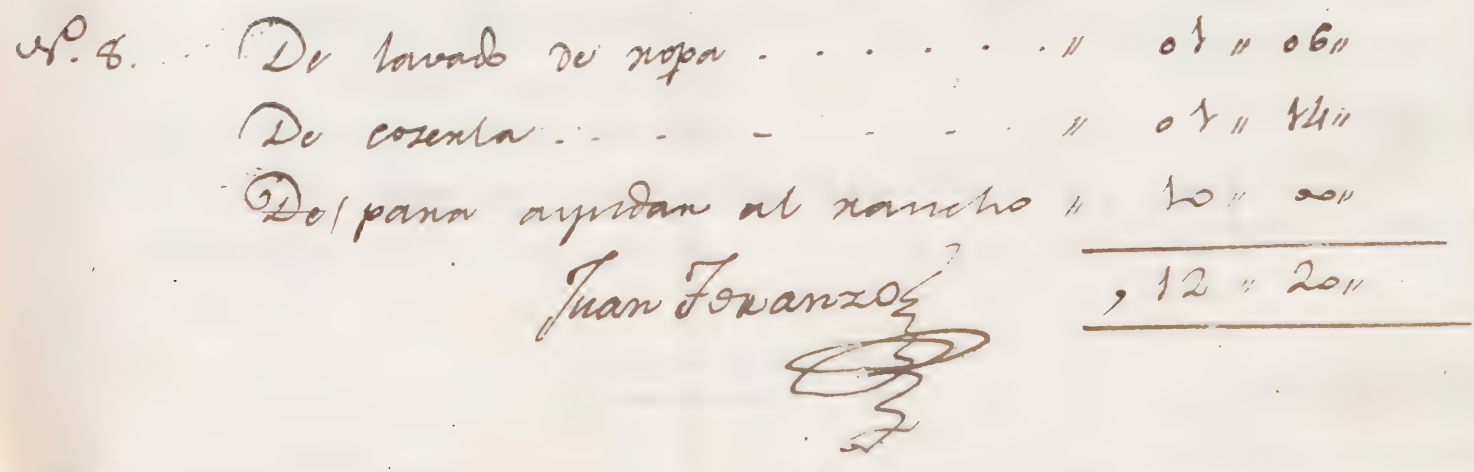 Nº. 8. De lavado de ropa . . . . . . " 01 " 06"
De coserla . . . - - - - . " 01 " 14"
De para ayudar al rancho " 10 " 00"
, 12 " 20"
Juan Feranzo